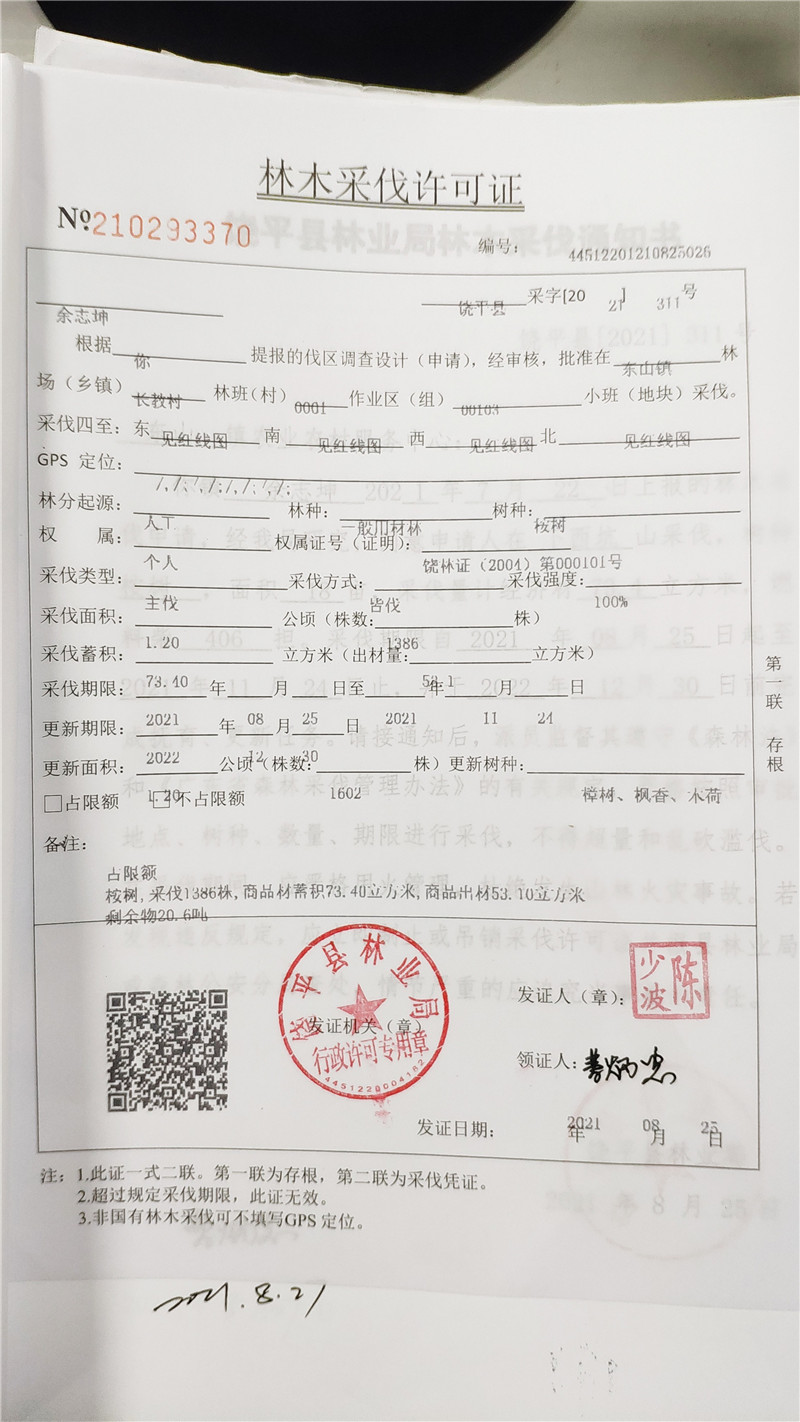 林木采伐许可证
Nº210293370
编号： 44512201210825026
余志坤 饶平县 采字[2021] 311号
根据 你 提报的伐区调查设计（申请），经审核，批准在 东山镇 林
场（乡镇） 长教村 林班（村） 0001 作业区（组） 00103 小班（地块）采伐。
采伐四至：东 见红线图 南 见红线图 西 见红线图 北 见红线图
GPS 定位： /,/;/,/;/,/;/,/;
林分起源： 人工 林种： 一般用材林 树种： 桉树
权 属： 个人 权属证号（证明）： 饶林证（2004）第000101号
采伐类型： 主伐 采伐方式： 皆伐 采伐强度： 100%
采伐面积： 1.20 公顷（株数： 1386 株）
采伐蓄积： 73.40 立方米（出材量： 53.1 立方米）
采伐期限： 2021 年 08 月 25 日至 2021 年 11 月 24 日
更新期限： 2022 年 12 月 30 日
更新面积： 1.20 公顷（株数： 1602 株）更新树种： 樟树、枫香、木荷
□占限额 □不占限额
备注：
占限额
桉树,采伐1386株,商品材蓄积73.40立方米,商品出材53.10立方米
剩余物20.6吨
第一联 存根
饶平县林业局
行政许可专用章
发证机关（章）
发证人（章）： 陈少波
领证人：
发证日期： 2021 年 08 月 25 日
注：1.此证一式二联。第一联为存根，第二联为采伐凭证。
2.超过规定采伐期限，此证无效。
3.非国有林木采伐可不填写GPS 定位。
2021.8.21